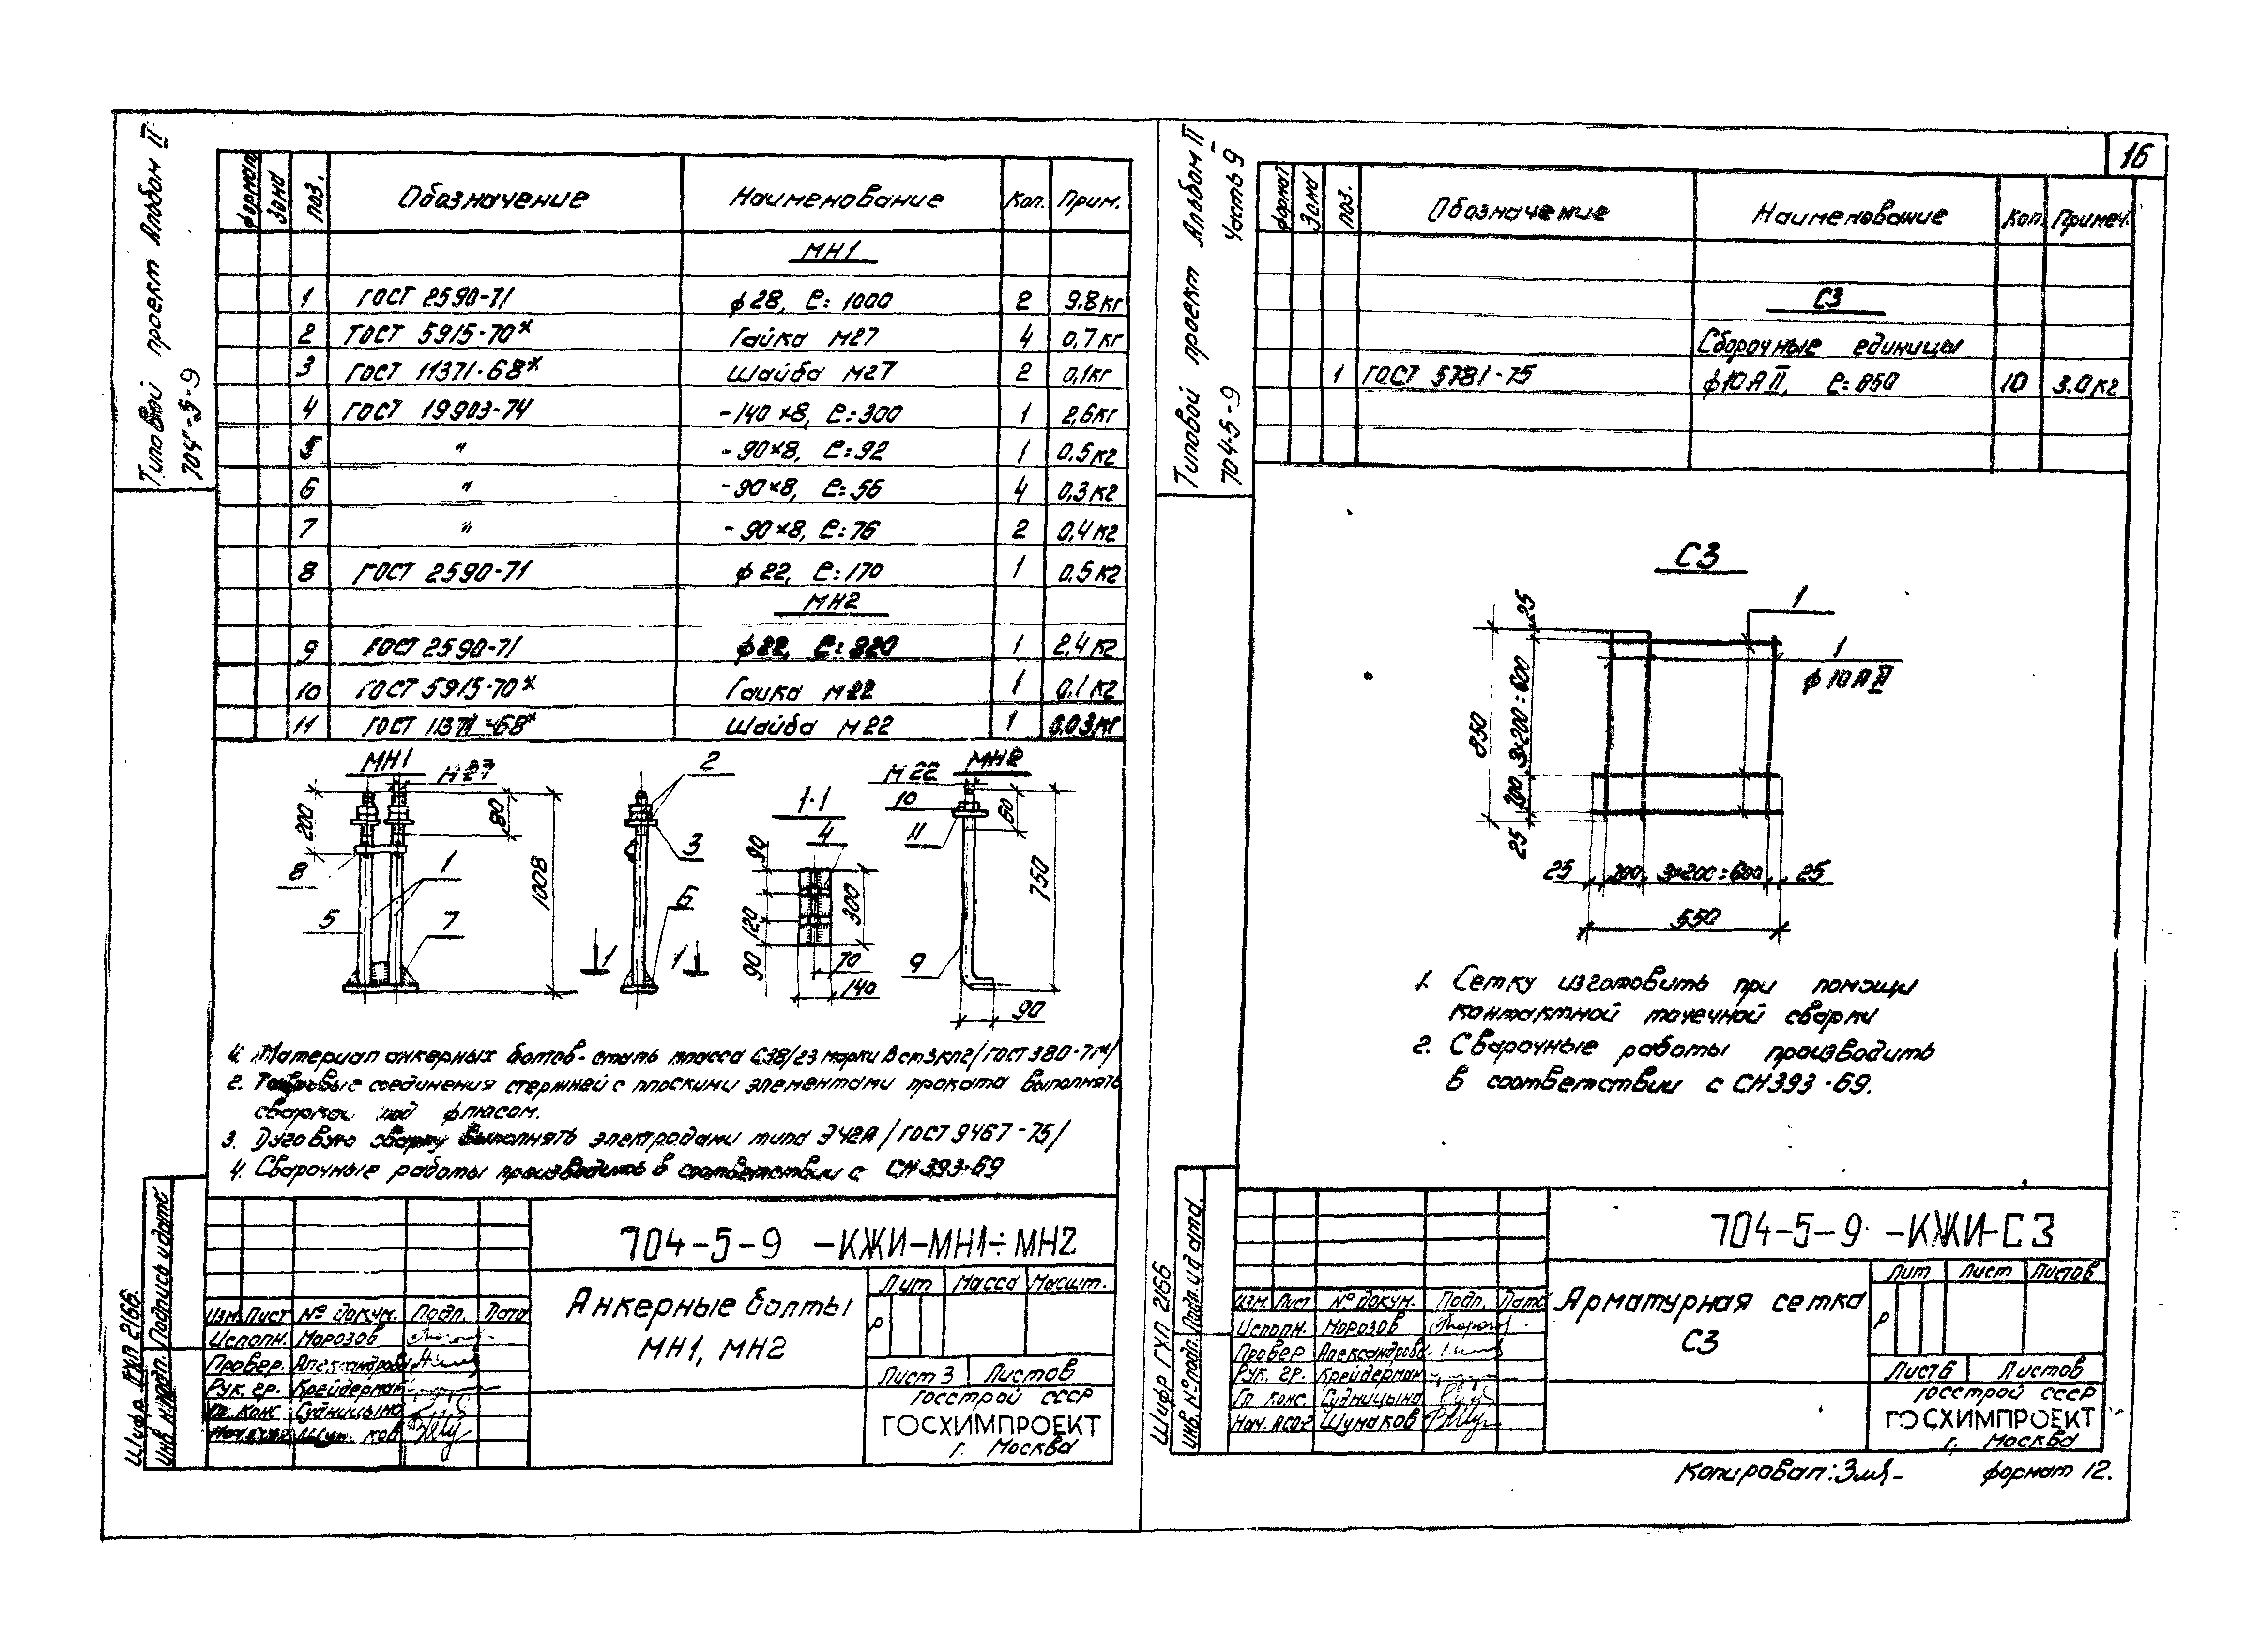 Типовой проект Альбом II
704-5-9
Формат Зона Поз. Обозначение Наименование Кол. Прим.
МН1
1 ГОСТ 2590-71 ϕ28, ℓ=1000 2 9.8кг
2 ГОСТ 5915-70* Гайка М27 4 0,7кг
3 ГОСТ 11371-68* Шайба М27 2 0,1кг
4 ГОСТ 19903-74 -140×8, ℓ=300 1 2,6кг
5 " -90×8, ℓ=92 1 0.5кг
6 " -90×8, ℓ=56 4 0,3кг
7 " -90×8, ℓ=76 2 0,4кг
8 ГОСТ 2590-71 ϕ22, ℓ=170 1 0,5кг
МН2
9 ГОСТ 2590-71 ϕ22, ℓ=820 1 2,4кг
10 ГОСТ 5915-70* Гайка М22 1 0,1кг
11 ГОСТ 11371-68* Шайба М22 1 0,03кг
МН1
М27
200
80
1008
8
1
5
7
2
3
6
1 1
1-1
4
90
120
90
300
70
140
МН2
М22
10
11
60
750
9
90
1. Материал анкерных болтов-сталь класса С38/23 марки Вст3кп2/ГОСТ 380-71*/
2. Тавровые соединения стержней с плоскими элементами проката выполнять
сваркой под флюсом.
3. Дуговую сварку выполнять электродами типа Э42А /ГОСТ 9467-75/
4. Сварочные работы производить в соответствии с СН 393-69
704-5-9 -КЖИ-МН1÷МН2
Анкерные болты
МН1, МН2
Лит Масса Масшт.
Р
Лист 3 Листов
Госстрой СССР
ГОСХИМПРОЕКТ
г. Москва
Изм. Лист № докум. Подп. Дата
Исполн. Морозов
Провер. Александрова
Рук. гр. Крейдерман
Гл. конс Судницына
Шифр ГХП 2166.
Инв. № подл. Подпись и дата
Типовой проект Альбом II
704-5-9 Часть 9
16
Формат Зона Поз. Обозначение Наименование Кол. Примеч.
С3
Сборочные единицы
1 ГОСТ 5781-75 ϕ10АII, ℓ=850 10 3.0кг
С3
1
1
ϕ10АII
25
3×200=600
200
25
850
25 200 3×200=600 25
550
1. Сетку изготовить при помощи
контактной точечной сварки
2. Сварочные работы производить
в соответствии с СН393-69.
704-5-9 -КЖИ-С3
Арматурная сетка
С3
Лит Лист Листов
Р
Лист 6 Листов
Госстрой СССР
ГОСХИМПРОЕКТ
г. Москва
Изм. Лист № докум. Подп. Дата
Исполн. Морозов
Провер Александрова
Рук. гр. Крейдерман
Гл конс. Судницына
Нач. АСО-2 Шумаков
Шифр ГХП 2166
Инв. № подл. Подп. и дата.
Копировал: формат 12.